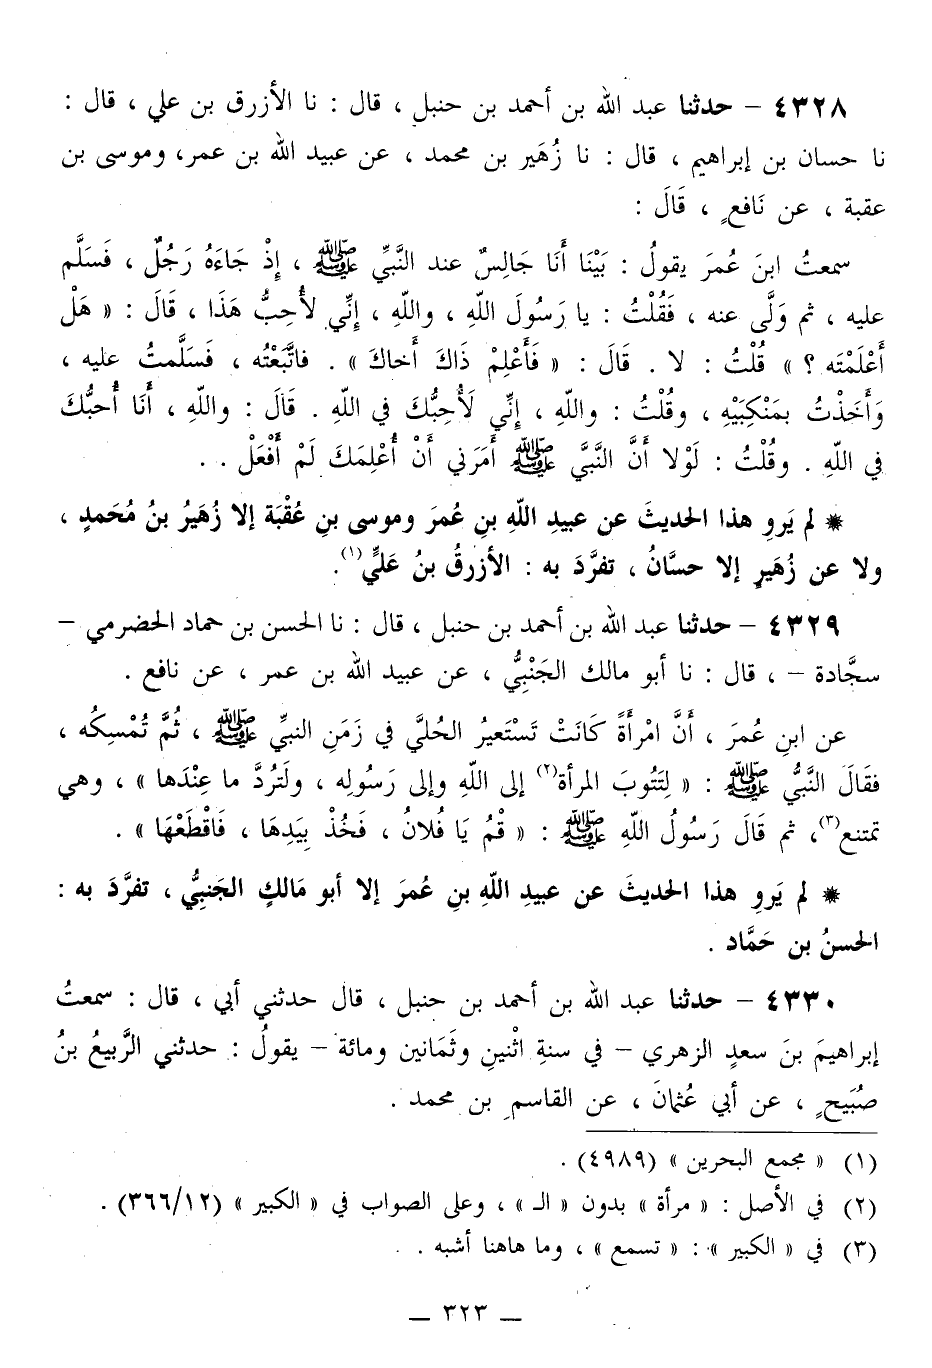 ٤٣٢٨ – حدثنا عبد الله بن أحمد بن حنبل ، قال : نا الأزرق بن علي ، قال :
نا حسان بن إبراهيم ، قال : نا زُهَير بن محمد ، عن عبيد الله بن عمر، وموسى بن
عقبة ، عن نَافعٍ ، قَالَ :
سمعتُ ابنَ عُمرَ يقولُ : بَيْنَا أَنَا جَالِسٌ عند النَّبيِّ ﷺ ، إِذْ جَاءَهُ رَجُلٌ ، فَسَلَّم
عليه ، ثم وَلَّى عنه ، فَقُلْتُ : يا رَسُولَ اللّهِ ، واللّهِ ، إِنِّي لأُحِبُّ هَذَا ، قَالَ : « هَلْ
أَعْلَمْتَه ؟ » قُلْتُ : لا . قَالَ : « فَأَعْلِمْ ذَاكَ أَخاكَ » . فاتَّبَعْتُه ، فَسَلَّمتُ عليه ،
وَأَخَذْتُ بمَنْكِبَيْهِ ، وقُلْتُ : واللّهِ ، إِنِّي لَأُحِبُّكَ فِي اللّهِ . قَالَ : واللّهِ ، أَنَا أُحبُّكَ
فِي اللّهِ . وقُلْتُ : لَوْلا أَنَّ النَّبيَّ ﷺ أَمَرَني أَنْ أُعْلِمَكَ لَمْ أَفْعَلْ . .
* لم يَروِ هذا الحديثَ عن عبيدِ اللّهِ بنِ عُمرَ وموسى بنِ عُقْبَة إلا زُهَيرُ بنُ مُحَمدٍ ،
ولا عن زُهَيرٍ إلا حسَّانُ ، تفرَّدَ به : الأزرقُ بنُ عَليٍّ(١).
٤٣٢٩ – حدثنا عبد الله بن أحمد بن حنبل ، قال : نا الحسن بن حماد الحضرمي –
سجَّادة – ، قال : نا أبو مالك الجَنْبيُّ ، عن عبيد الله بن عمر ، عن نافع .
عن ابنِ عُمرَ ، أَنَّ امْرأَةً كَانَتْ تَسْتَعيرُ الحُليَّ في زَمَنِ النبيِّ ﷺ ، ثُمَّ تُمْسِكُه ،
فقَالَ النَّبيُّ ﷺ : « لِتَتُوبَ المرأة(٢) إلى اللّهِ وإلى رَسُولِه ، ولَتَرُدَّ ما عِنْدَها » ، وهي
تمتنع(٣)، ثم قَالَ رَسُولُ اللّهِ ﷺ : « قُمْ يَا فُلانُ ، فَخُذْ بِيَدِهَا ، فَاقْطَعْهَا » .
* لم يَروِ هذا الحديثَ عن عبيدِ اللّهِ بنِ عُمرَ إلا أبو مَالكٍ الجَنبيُّ ، تفرَّدَ به :
الحسنُ بن حَمَّاد .
٤٣٣٠ – حدثنا عبد الله بن أحمد بن حنبل ، قال حدثني أبي ، قال : سمعتُ
إبراهيمَ بنَ سعدٍ الزهري – في سنةِ اثْنينِ وثَمَانين ومائة – يقولُ : حدثني الرَّبيعُ بنُ
صُبَيح ، عن أبي عُثمانَ ، عن القاسمِ بن محمد .
(١) « مجمع البحرين » (٤٩٨٩) .
(٢) في الأصل : « مرأة » بدون « الـ » ، وعلى الصواب في « الكبير » (٣٦٦/١٢) .
(٣) في « الكبير » : « تسمع » ، وما هاهنا أشبه .
– ٣٢٣ –